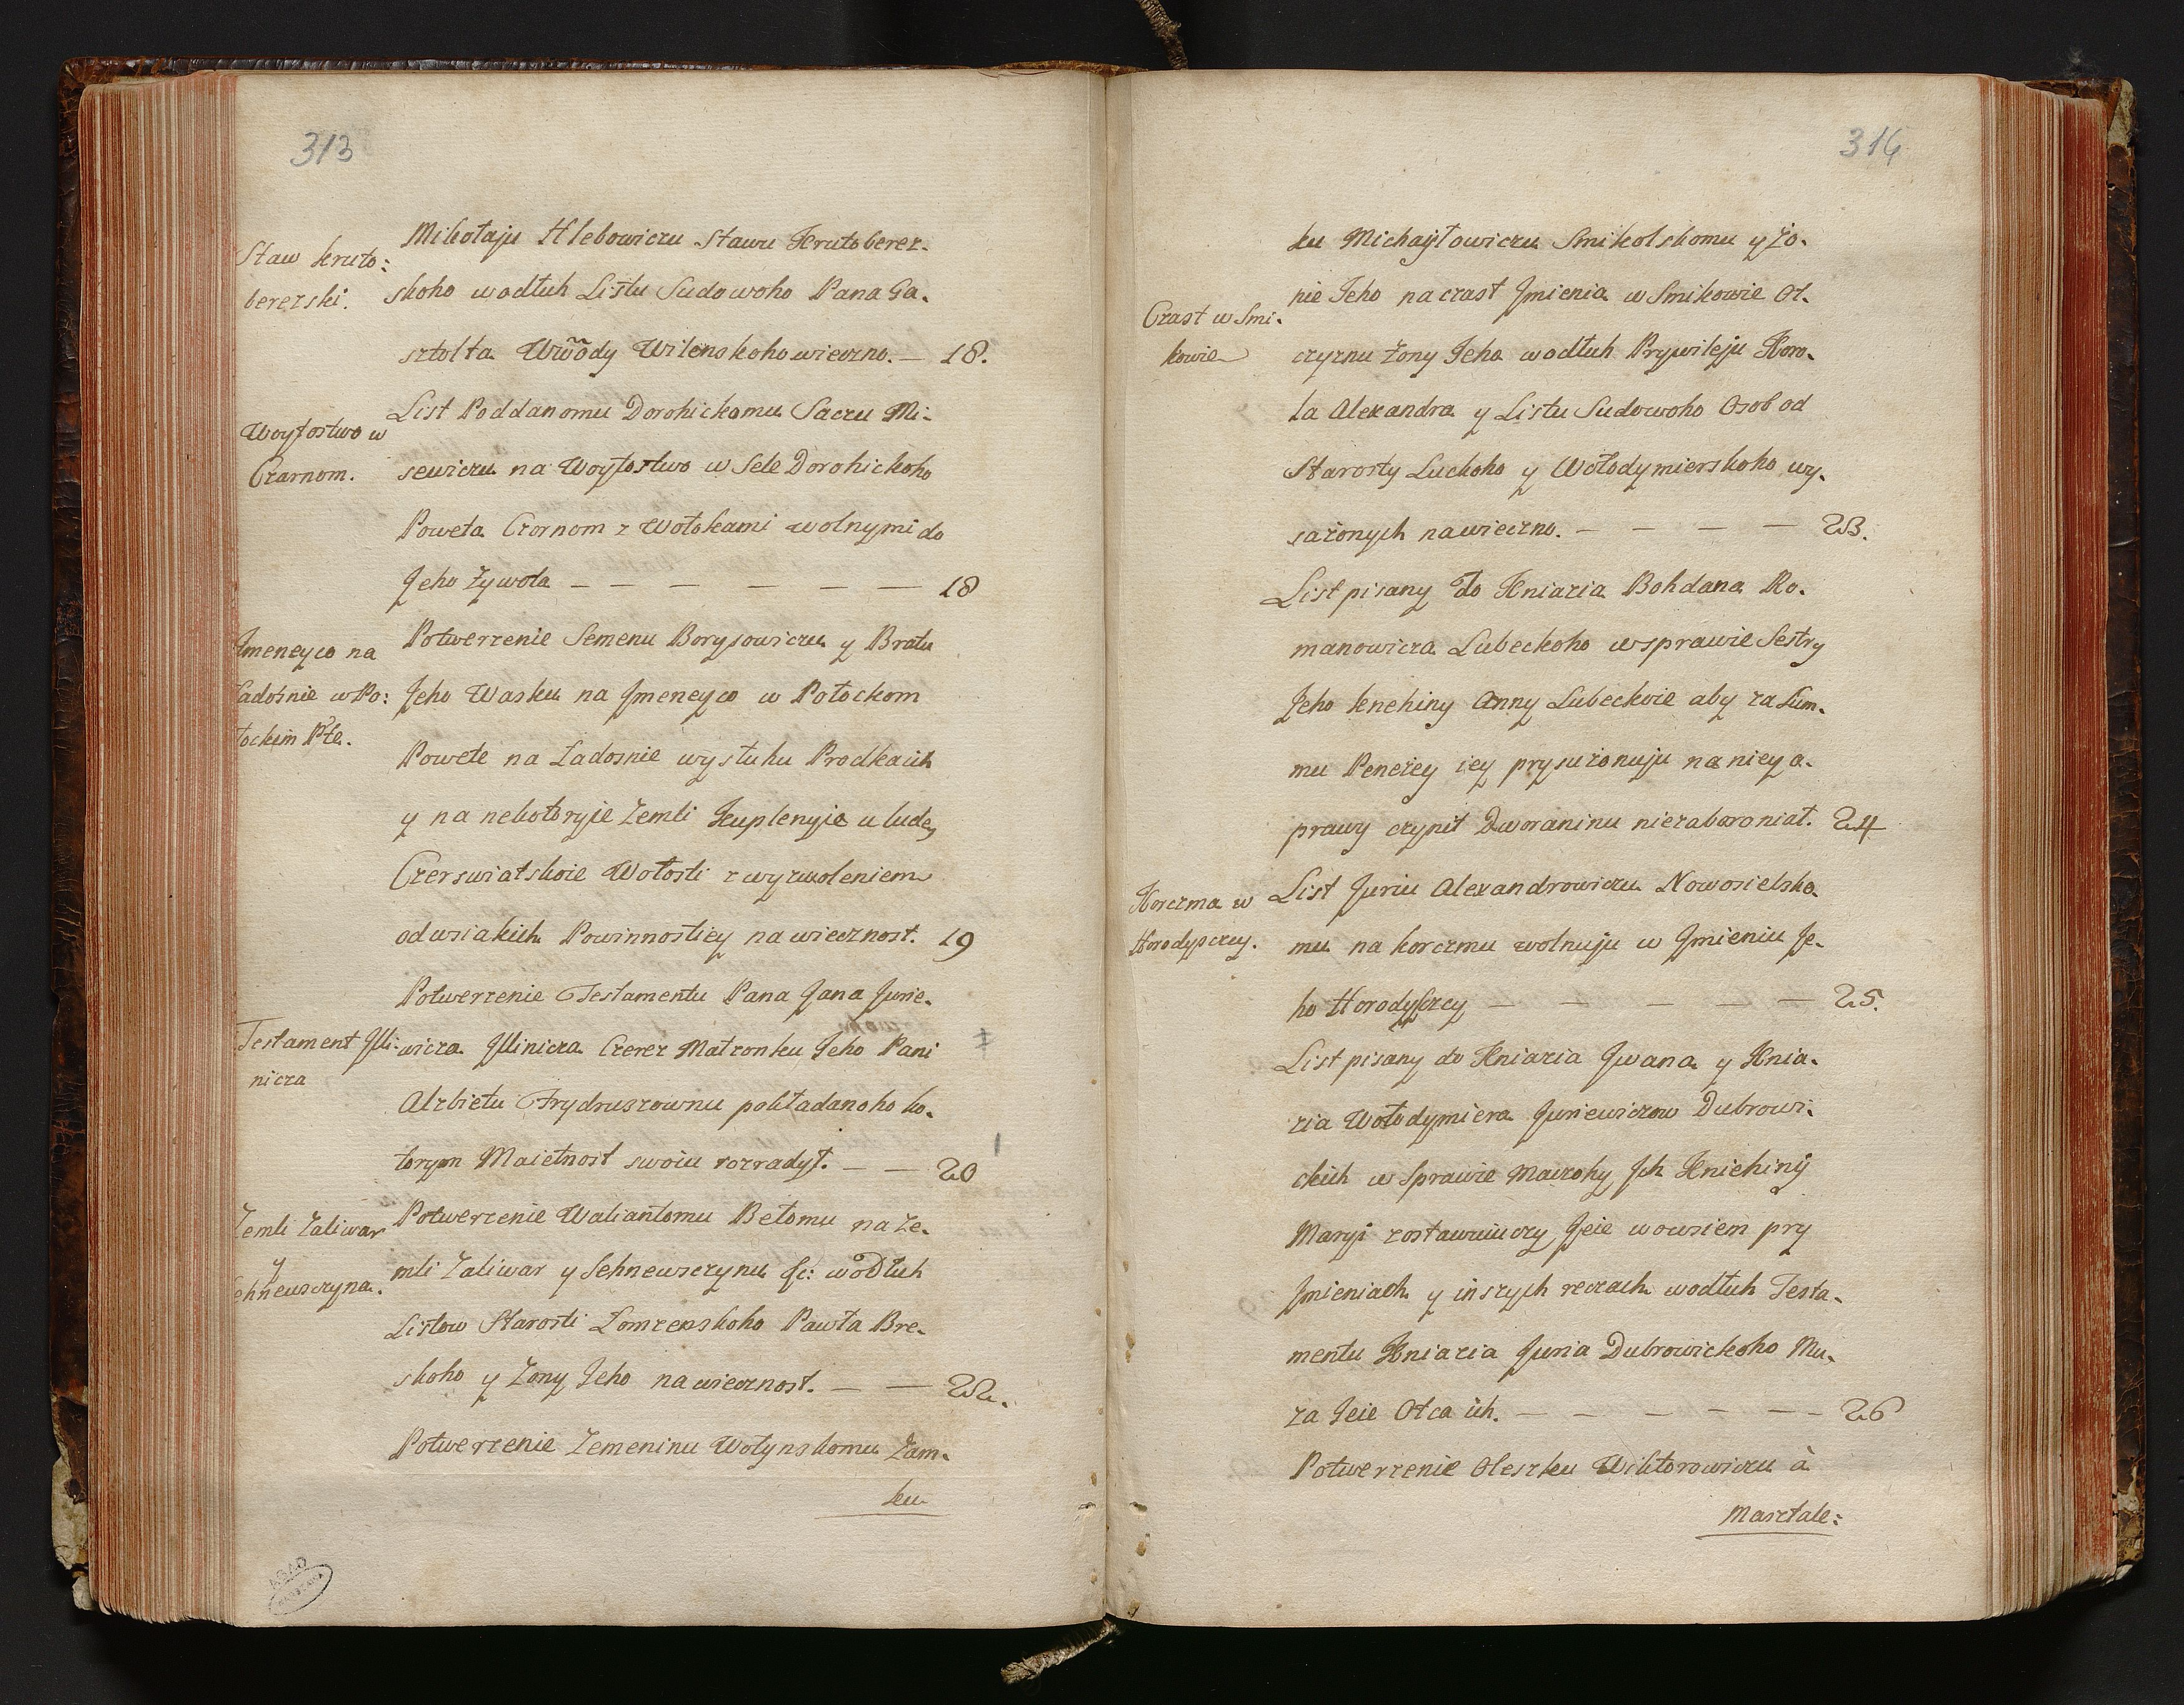 313
Staw kruto:
berezski.
Mikołaju Hlebowiczu Stawu Krutoberez-
skoho wodłuh Listu Sudowoho Pana Ga-
sztolta Wwody Wilenskoho wieczno. — 18.
Woytostwo w
Czarnom.
List Poddanomu Dorohickomu Saczu Mi-
sewiczu na Woytostwo w Sele Dorohickoho
Poweta Czornom z Wołokami wolnymi do
Jeho Żywota — — — — — — 18
Jmeneyco na
Ladośnie w Po:
łockim Pte.
Potwerzenie Semenu Borysowiczu y Bratu
Jeho Wasku na Jmeneyco w Połockom
Powete na Ladosnie wysłuhu Prodka ich
y na nekotoryie Zemli Kuplenyie u ludey
Czerswiatskoie Wołosti z wyzwoleniem
od wsiakich Powinnostiey na wiecznost. 19
Testament Jlli-
nicza
Potwerzenie Testamentu Pana Jana Jurie-
wicza Jllinicza Czerez Małzonku Jeho Pani
Alzbietu Frydruszownu pokładanoho ko-
torym Maietnost swoiu rozradył. — — 20
Zemli Zaliwar
y
Sehneuszczyna.
Potwerzenie Waliantomu Bełomu na Ze-
mli Zaliwar y Sehnewszczynu &c: wodłuh
Listow Starosti Lomzenskoho Pawła Bre-
skoho y Zony Jeho na wiecznost. — — 22.
Potwerzenie Zemeninu Wołynskomu Zam-
ku
316
ku Michayłowiczu Smikolskomu y Żo-
nie Jeho na czast Jmienia w Smikowie Ot-
Czast w Smi-
kowie
czyznu Żony Jeho wodłuh Prywileju Koro-
la Alexandra y Listu Sudowoho Osob od
Starosty Luckoho y Wołodymierskoho wy-
sażonych na wieczno. — — — — 23.
List pisany do Kniazia Bohdana Ro-
manowicza Lubeckoho w sprawie Sestry
Jeho knehiny Anny Lubeckoie aby za Sum-
mu Penezey iey prysużonuju na niey o-
prawy czynit Dworaninu niezaboroniat. 24
Korczma w
Horodyszczy.
List Juriu Alexandrowiczu Nowosielsko-
mu na korczmu wolnuju w Jmieniu Je-
ho Horodyszczy — — — — — 25.
List pisany do Kniazia Jwana y Knia-
zia Wołodymiera Juriewiczow Dubrowi-
ckich w Sprawie Maczohy Jch Kniehiny
Maryi zostawuiuczy Jeie wo wsiem pry
Jmieniach y inszych reczach wodłuh Testa-
mentu Kniazia Juria Dubrowickoho Mu-
ża Jeie Otca ich. — — — — — 26
Potwerzenie Oleszku Wiktorowiczu à
Marztale: